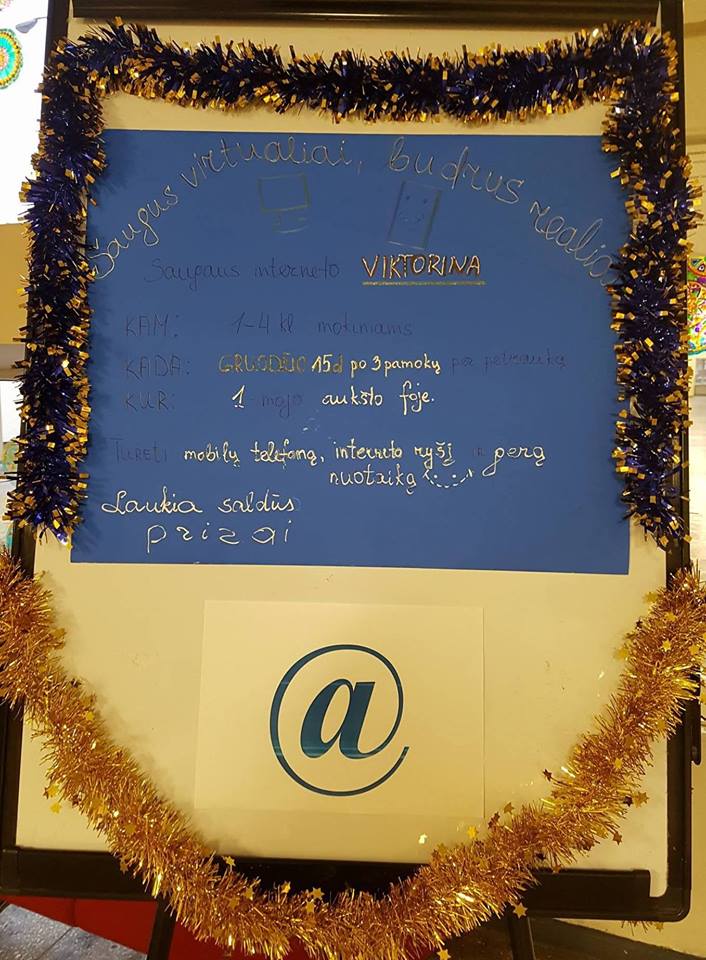 Saugus virtualiai, budrus realiai
Saugaus interneto VIKTORINA
KAM: 1-4 kl mokiniams
KADA: GRUODŽIO 15d po 3 pamokų per pertrauką
KUR: 1-mojo aukšto foje.
TURĖTI mobilų telefoną, interneto ryšį ir gerą
nuotaiką
Laukia saldūs
prizai
@